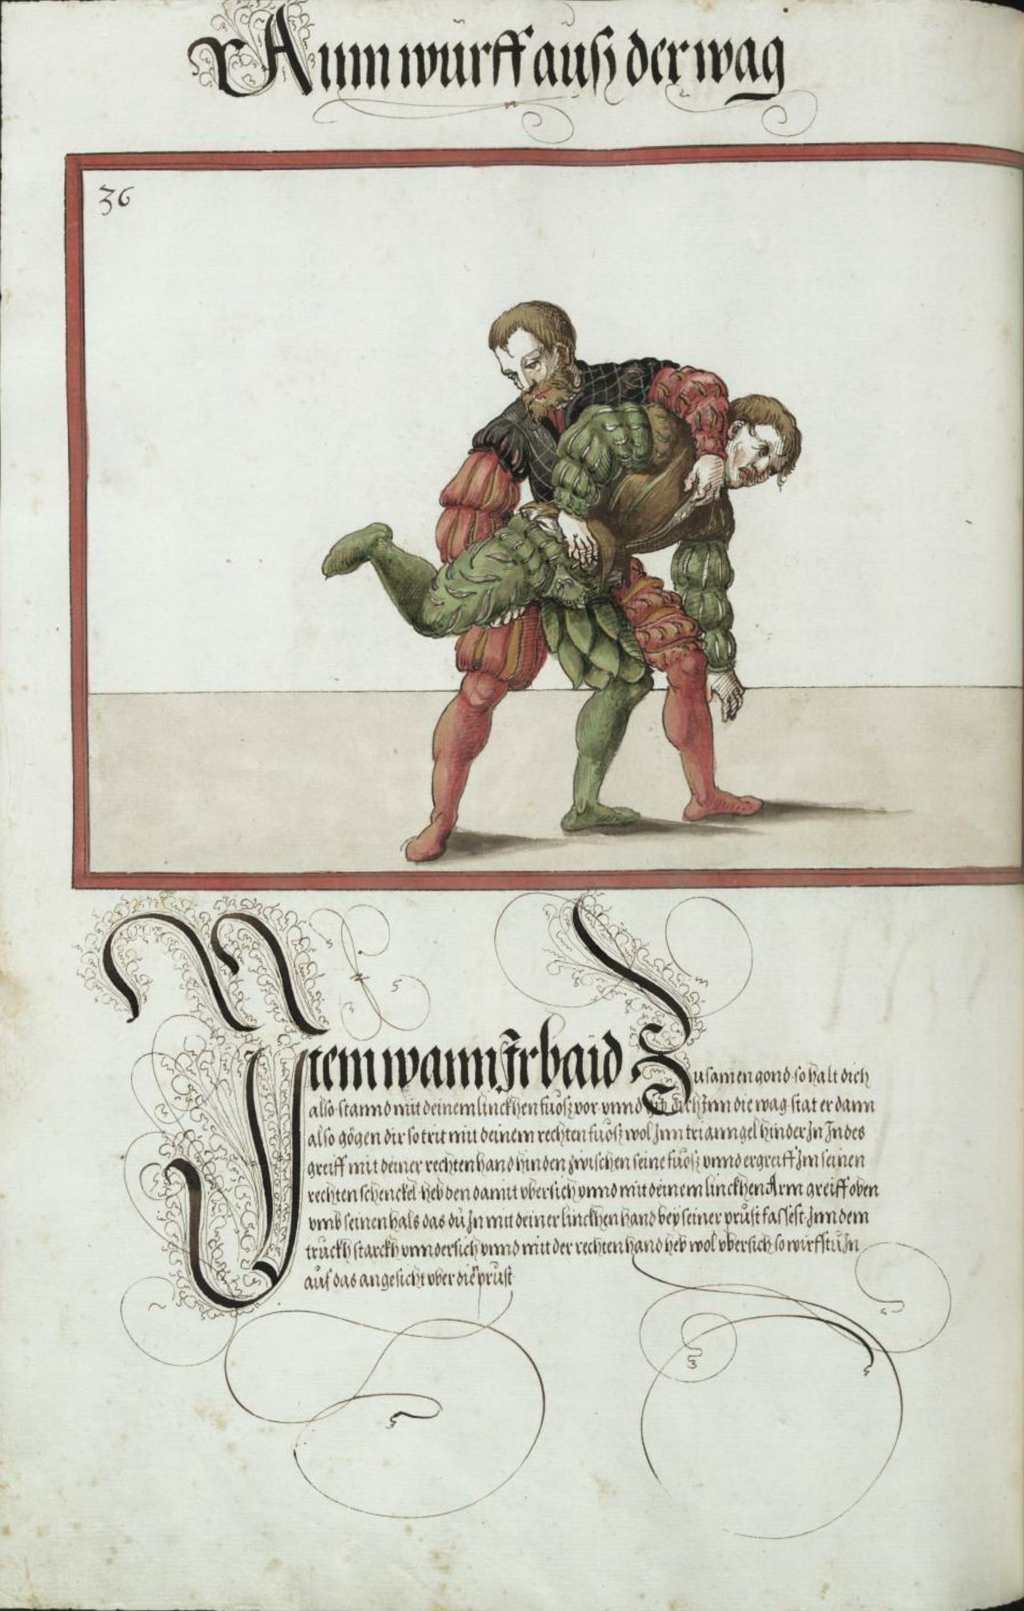 Ainn wurff ausz der wag
36
Item wann Ir baid Zusamen gond so halt dich
also stannd mit deinem linckhen fuosz vor vnnd dich Inn die wag stat er dann
also gögen dir so trit mit deinem rechten fuosz wol Inn trianngel hinder In Indes
greiff mit deiner rechten hand hinden zwischen seine fuosz vnnd ergreiff Im seinen
rechten schenckel heb den damit vbersich vnnd mit deinem linckhen Arm greiff oben
vmb seinen hals das dü In mit deiner linckhen hand bey seiner prüst fassest Inn dem
truckh starckh vnndersich vnnd mit der rechten hand heb wol vbersich so wirfstü In
auf das angesicht vber die prüst